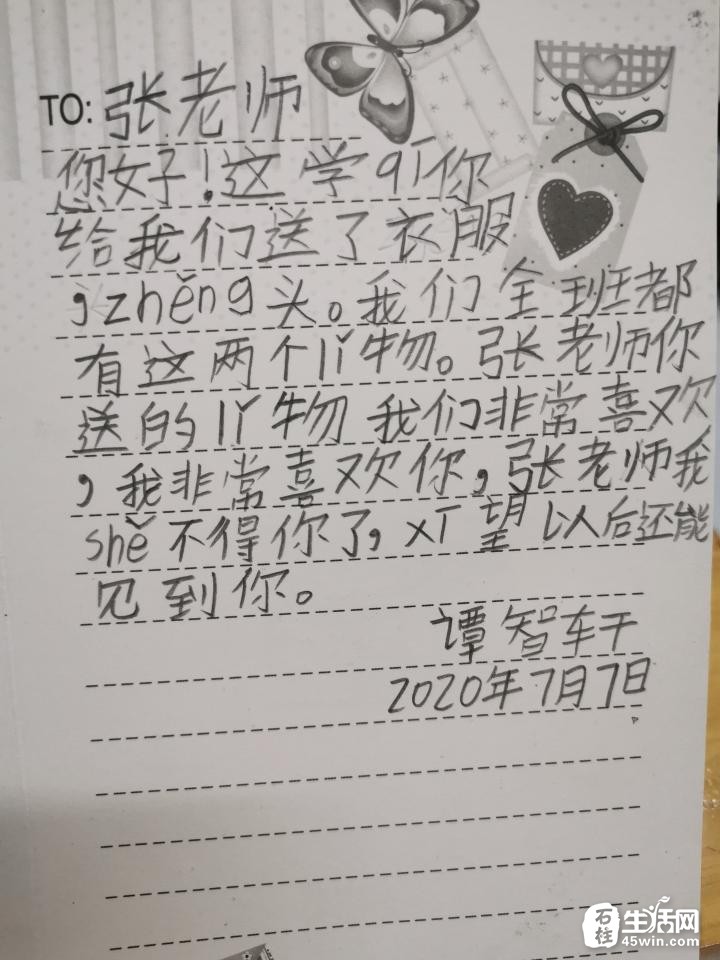 TO: 张老师
您好！这学qī你
给我们送了衣服
，zhěng头。我们全班都
有这两个lǐ物。张老师你
送的lǐ物我们非常喜欢
，我非常喜欢你，张老师我
shě不得你了，xī望以后还能
见到你。
谭智轩
2020年7月7日
石柱生活网
45win.com